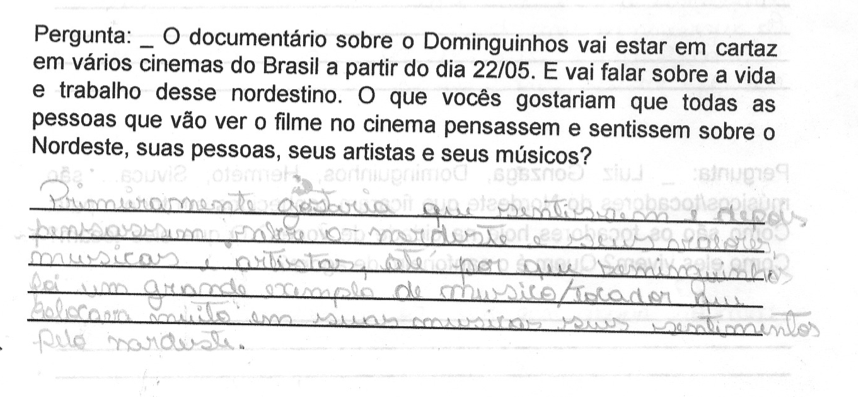 Pergunta: _ O documentário sobre o Dominguinhos vai estar em cartaz
em vários cinemas do Brasil a partir do dia 22/05. E vai falar sobre a vida
e trabalho desse nordestino. O que vocês gostariam que todas as
pessoas que vão ver o filme no cinema pensassem e sentissem sobre o
Nordeste, suas pessoas, seus artistas e seus músicos?
Primeiramente gostaria que sentissem e depois
pensassem sobre o nordeste e seus
musicas e artistas, até por que Dominguinhos
foi um grande exemplo de musico/tocador que
muito em suas musicas seus sentimentos
pelo nordeste.